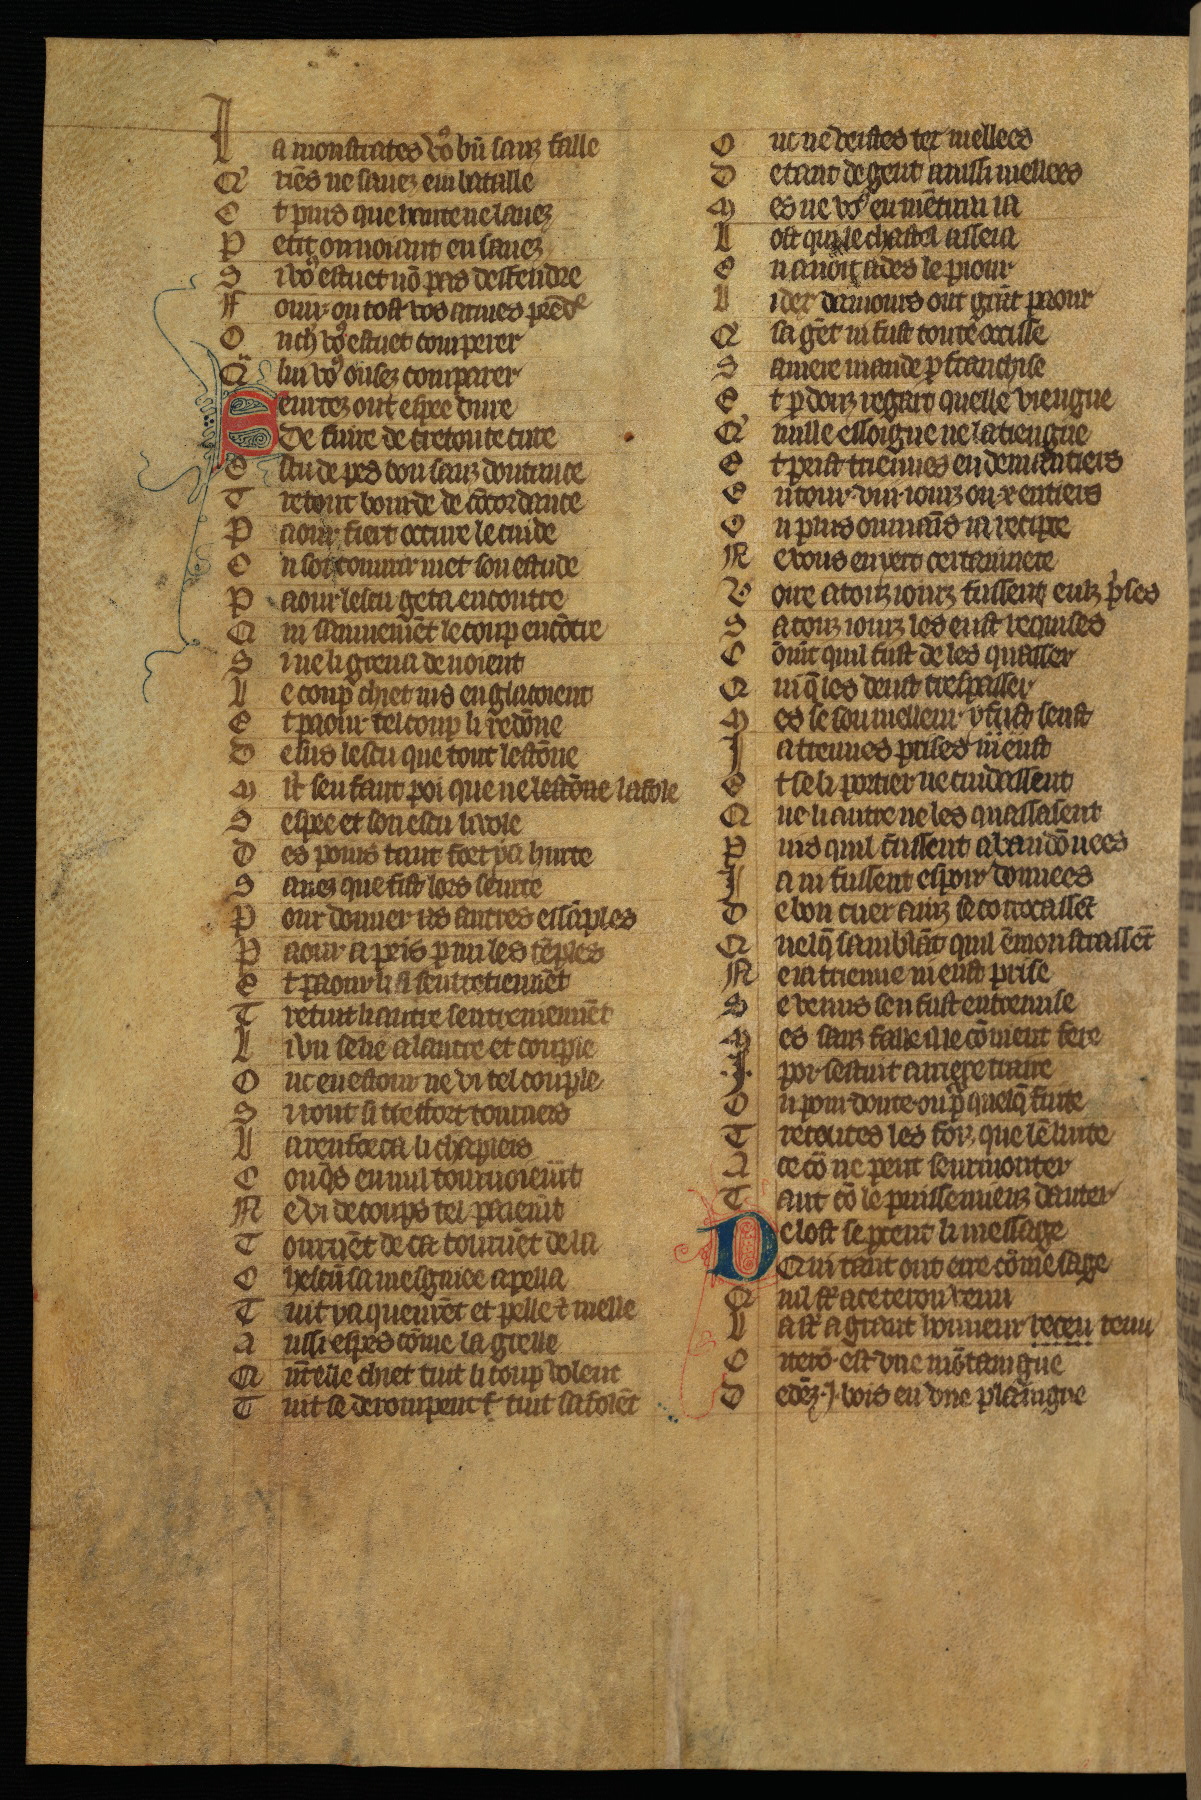 I a monstrates vo' bn̄ sanz faille
Q' riēs ne sauez en bataille
E t puis que hante ne lauez
P etit ou noiant en sauez
S i vo' estuet nō pas deffendre
F ouir ou tost vos armes prēd'e
O u ch' vo' estuet comperer
Q̈ lui vo' ousez comparer
S eurtez out espee dure
De fuire de trestoute cure
E scu de pes bon sanz doutance
T retout bourde de cōcordance
P aour fiert occirre le cuide
E n soi couurir met son estude
P aour lescu geta encontre
Q ui sainnemēt le coup encōtre
S i ne li greua de noient
L e coup chiet ius en glacoient
E t paour tel coup li redōne
D esus lescu que tout lestōne
M lt̄ sen faut poi que ne lestōne lafole
S espee et son escu li vole
D es poins tant fort ya hurte
S auez que fist lors seurte
P our donner as autres essāples
P aour a peis p̄mi les tēples
E t paour li si sentretiennēt
T retuit li autre sentreuiennēt
L i vn se lie a lautre et couple
O nc en estour ne vi tel couple
S i ront si tres fort tourniers
L a renforca li chapleis
C onq̄s en nul tournoiemt̄
N e vi de coups tel paiemt̄
T ournēt de ca tournet de la
C hascū sa mesgniee apella
T uit ya queurēt et pelle & melle
A ussi espes cōme la grelle
Q n̄t elle chiet tuit li coup volent
T uit se derompent & tuit safolēt
O nc ne veistes tex mellees
D e tant de gent aiussi mellees
M es ne vo' en mētirai ia
L ost qui le chastel asseia
E n auoit ades le piour
L i dex damours out grāt paour
Q' sa gēt ni fust toute occisse
S a mere mande p̄ franchise
E t p̄ dous regart quelle viengne
Q' nulle essoigne ne la tiengne
E t prist trieuues en demētiers
E ntour vint iourz ou x entiers
O u plus ou mains ia recipe
N e vous en vert certainnete
V oire a touz iourz fussent eulz p̄ses
S a touz iourz les eust requises
C ōmt̄ quil fust de les quasser
Q ui q̄ les deust trespasser
M es se son melleur y fust seust
J a trieuues prises ni eust
E t se li portier ne cuidassent
Q ue li autre ne les quassassent
P uis quil fussent abandōnees
J a ni fussent espoir donnees
D e bon cuer ainz se corrocasset
Q uelq̄ samblāt quil ē monstrassēt
N e ia trieuue ni eust prise
S e venus sen fust entremise
M es sanz faille il le cōuient fere
.J. poi sestuit arriere traire
O u pour doute ou p̄ quelq̄ fuite
T retoutes les foiz que lē luite
A ce cō ne peut seurmonter
T ant cō le puisse mieuz danter
De lost se part li message
Qui tant out erre cōme sage
Q uil st̄ a citeron venu
L a st̄ a grant honneur receu tenu
C iterō est vne mōtaigne
D edēz .J. bois en vne plaingne